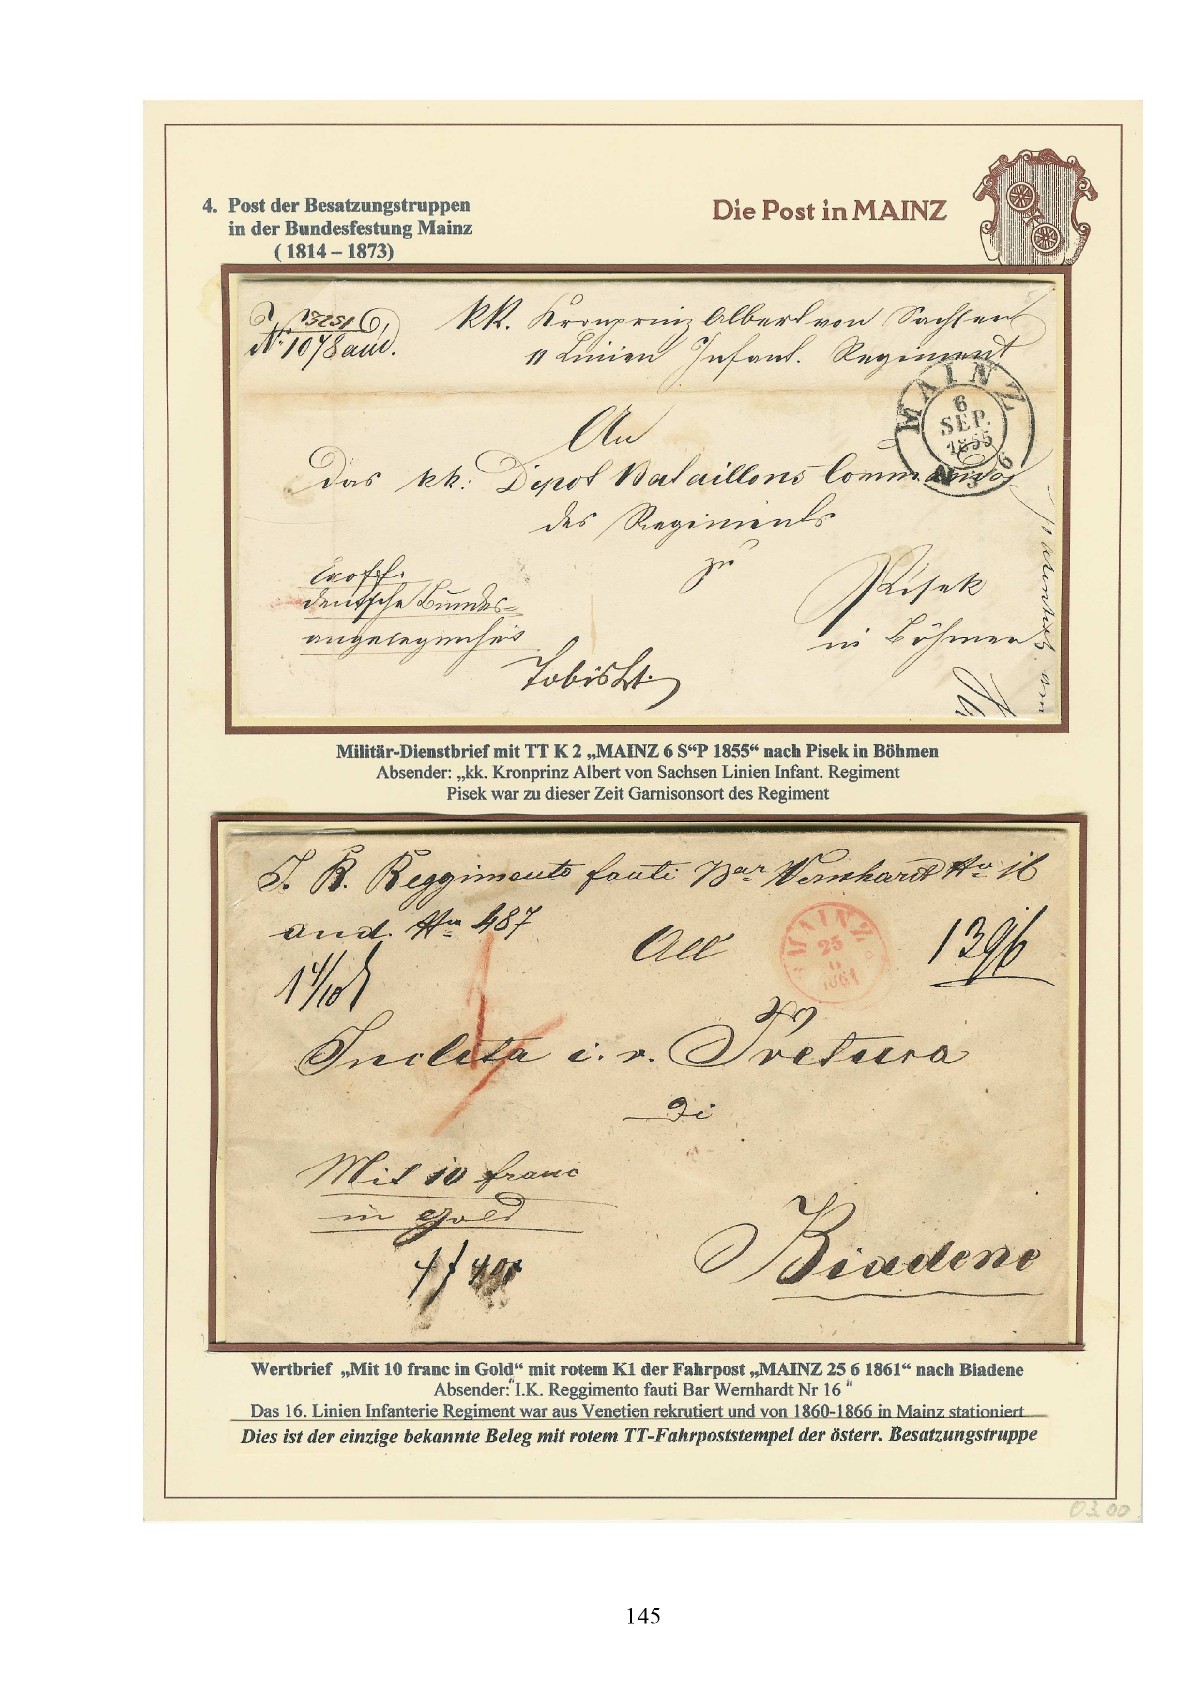 4. Post der Besatzungstruppen
in der Bundesfestung Mainz
( 1814 – 1873)
Die Post in MAINZ
13251
No 1078 aud.
kk. Kronprinz Albert von Sachsen
11 Linien Infant. Regiment
MAINZ
6
SEP.
1855
N 3 - 6
An
das kk: Depot Bataillons Commando
des Regiments
zu
Pisek
in Böhmen
Exoff.
deutsche Bundes-
angelegenheit
Militär-Dienstbrief mit TT K 2 „MAINZ 6 S“P 1855“ nach Pisek in Böhmen
Absender: „kk. Kronprinz Albert von Sachsen Linien Infant. Regiment
Pisek war zu dieser Zeit Garnisonsort des Regiment
I. R. Reggimento fanti Bar Wernhardt No 16
and. No 487
All
MAINZ
25
6
1861
1396
Inclita i. r. Pretura
Di
Mit 10 franc
in Gold
Biadene
Wertbrief „Mit 10 franc in Gold“ mit rotem K1 der Fahrpost „MAINZ 25 6 1861“ nach Biadene
Absender:"I.K. Reggimento fauti Bar Wernhardt Nr 16 "
Das 16. Linien Infanterie Regiment war aus Venetien rekrutiert und von 1860-1866 in Mainz stationiert
Dies ist der einzige bekannte Beleg mit rotem TT-Fahrpoststempel der österr. Besatzungstruppe
03.00
145